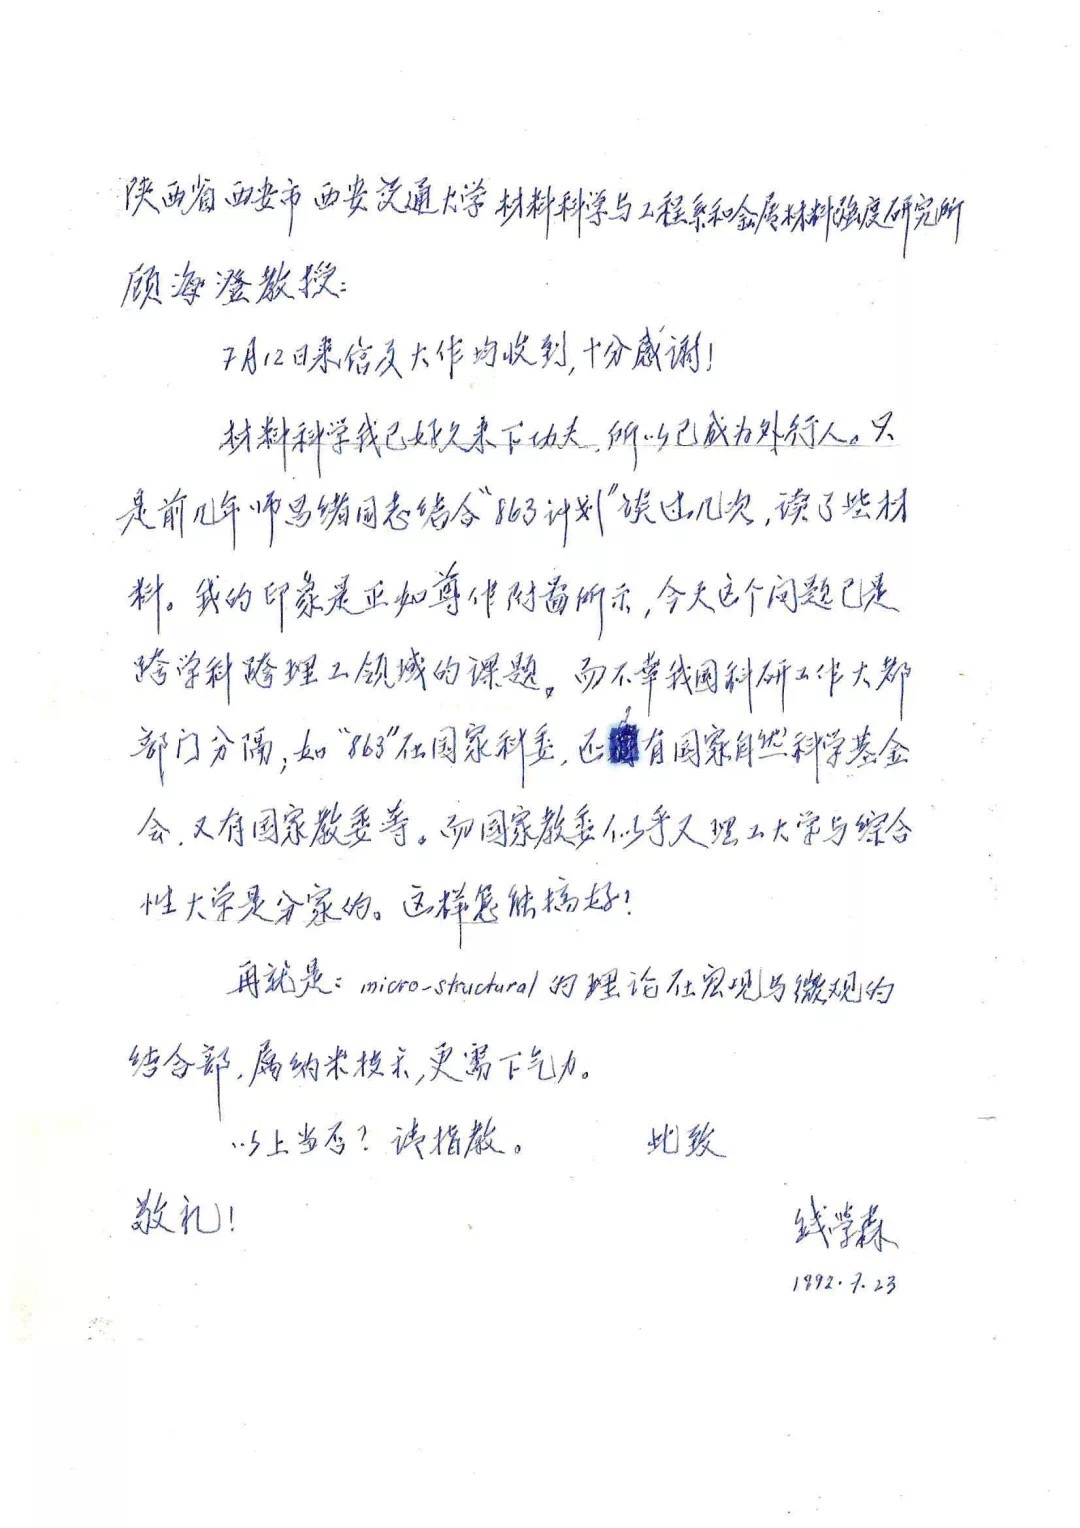 陕西省西安市西安交通大学材料科学与工程系和金属材料强度研究所
顾海澄教授：
7月12日来信及大作均收到，十分感谢！
材料科学我已好久未下功夫，所以已成为外行人。只
是前几年师昌绪同志结合“863计划”谈过几次，读了些材
料。我的印象是正如尊作附图所示，今天这个问题已是
跨学科跨理工领域的课题。而不幸我国科研工作大都
部门分隔；如“863”在国家科委，还有国家自然科学基金
会，又有国家教委等。而国家教委似乎又理工大学与综合
性大学是分家的。这样怎能搞好？
再就是：micro-structural的理论在宏观与微观的
结合部，属纳米技术，更需下气力。
以上当否？请指教。 此致
敬礼！
钱学森
1992.7.23